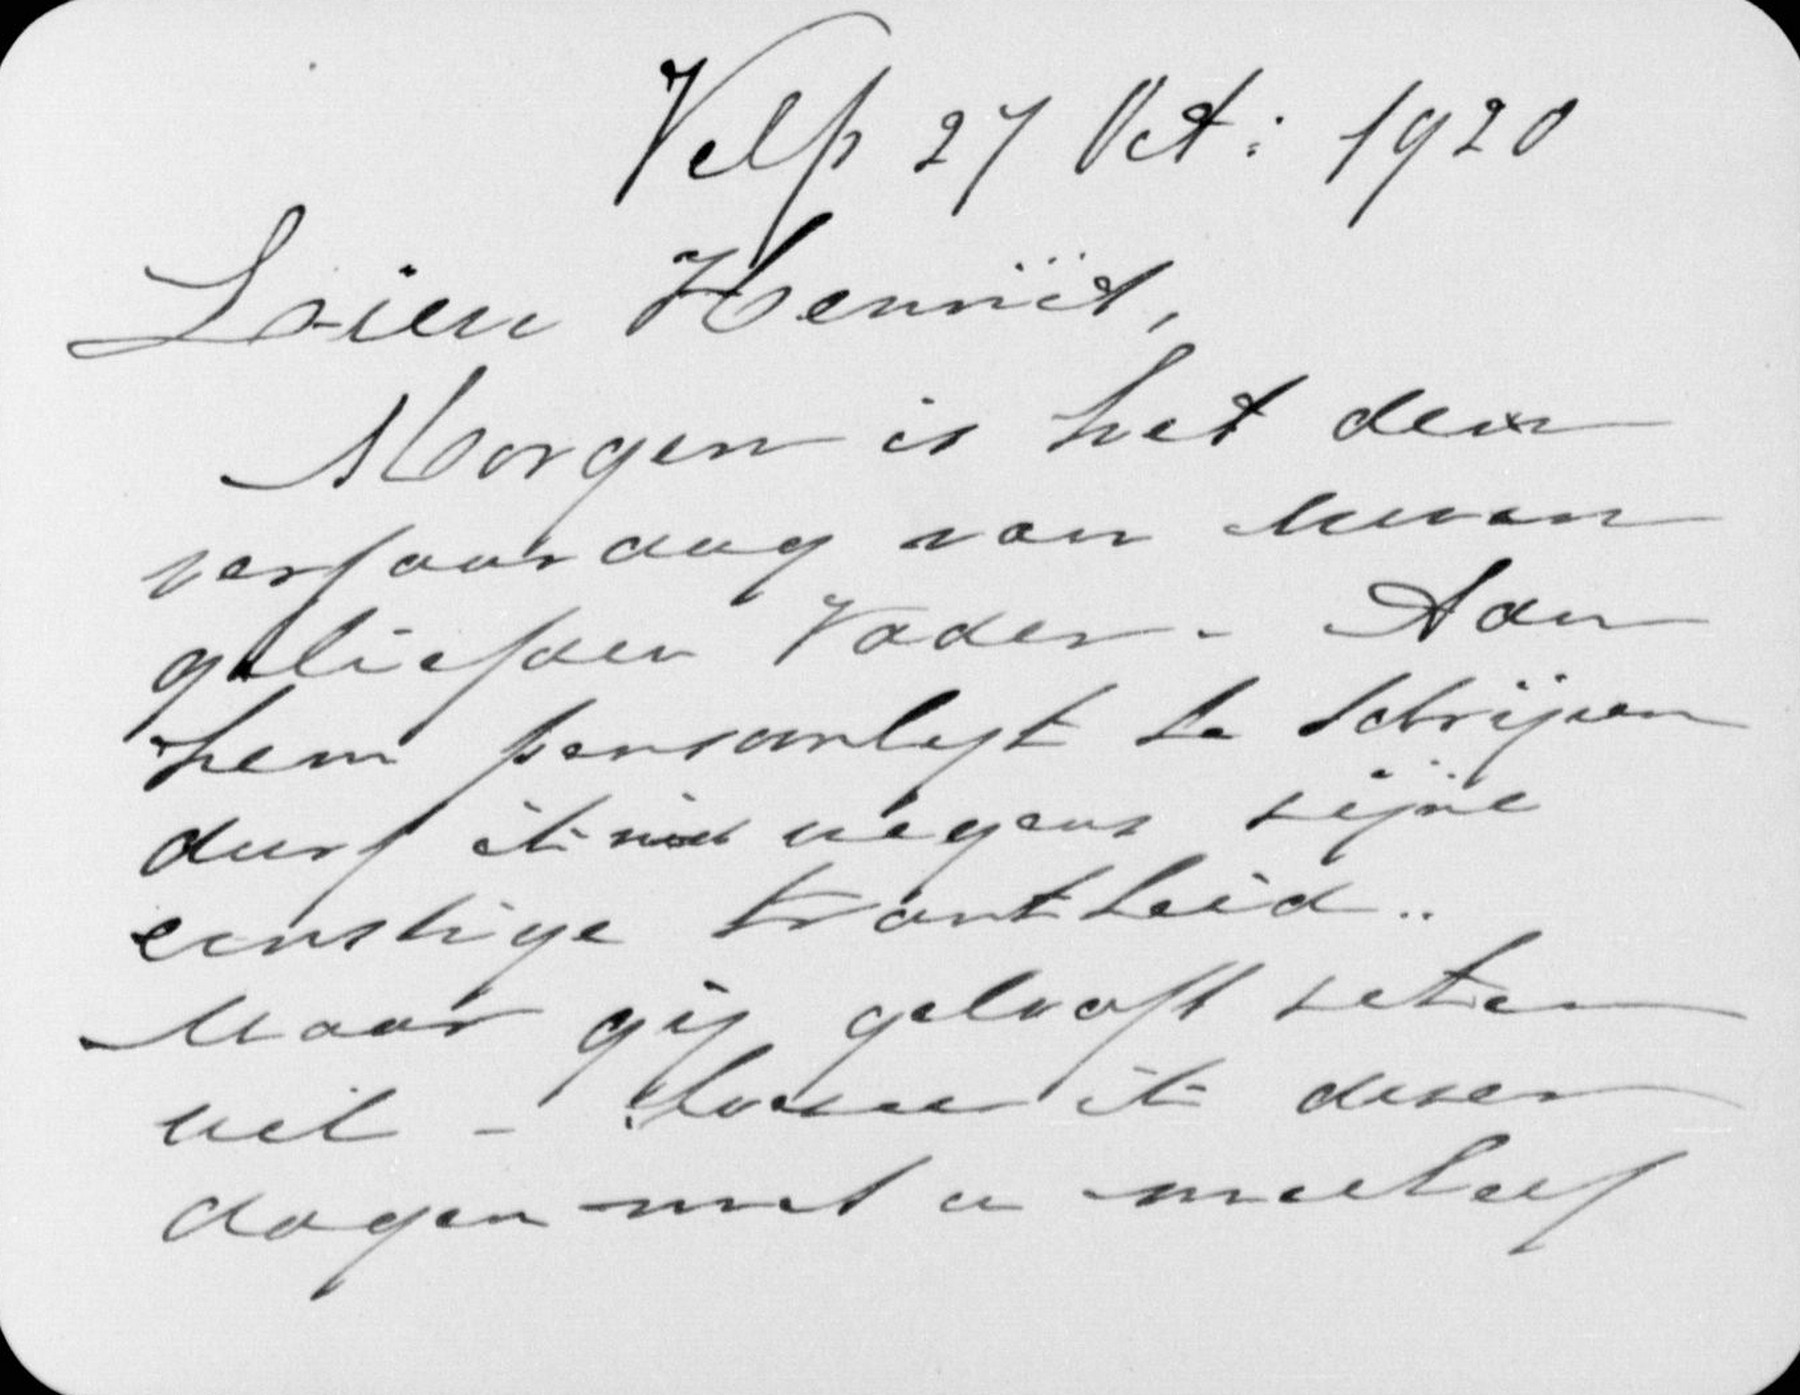 Velp 27 Oct: 1920
Lieve Henriët,
Morgen is het den
verjaardag van uwen
geliefden Vader. Aan
hem persoonlijk te schrijven
durf ik niet wegens zijne
ernstige krankheid..
Maar gij gelooft zeker
wel - hoezeer ik dezen
dagen met u meeleef